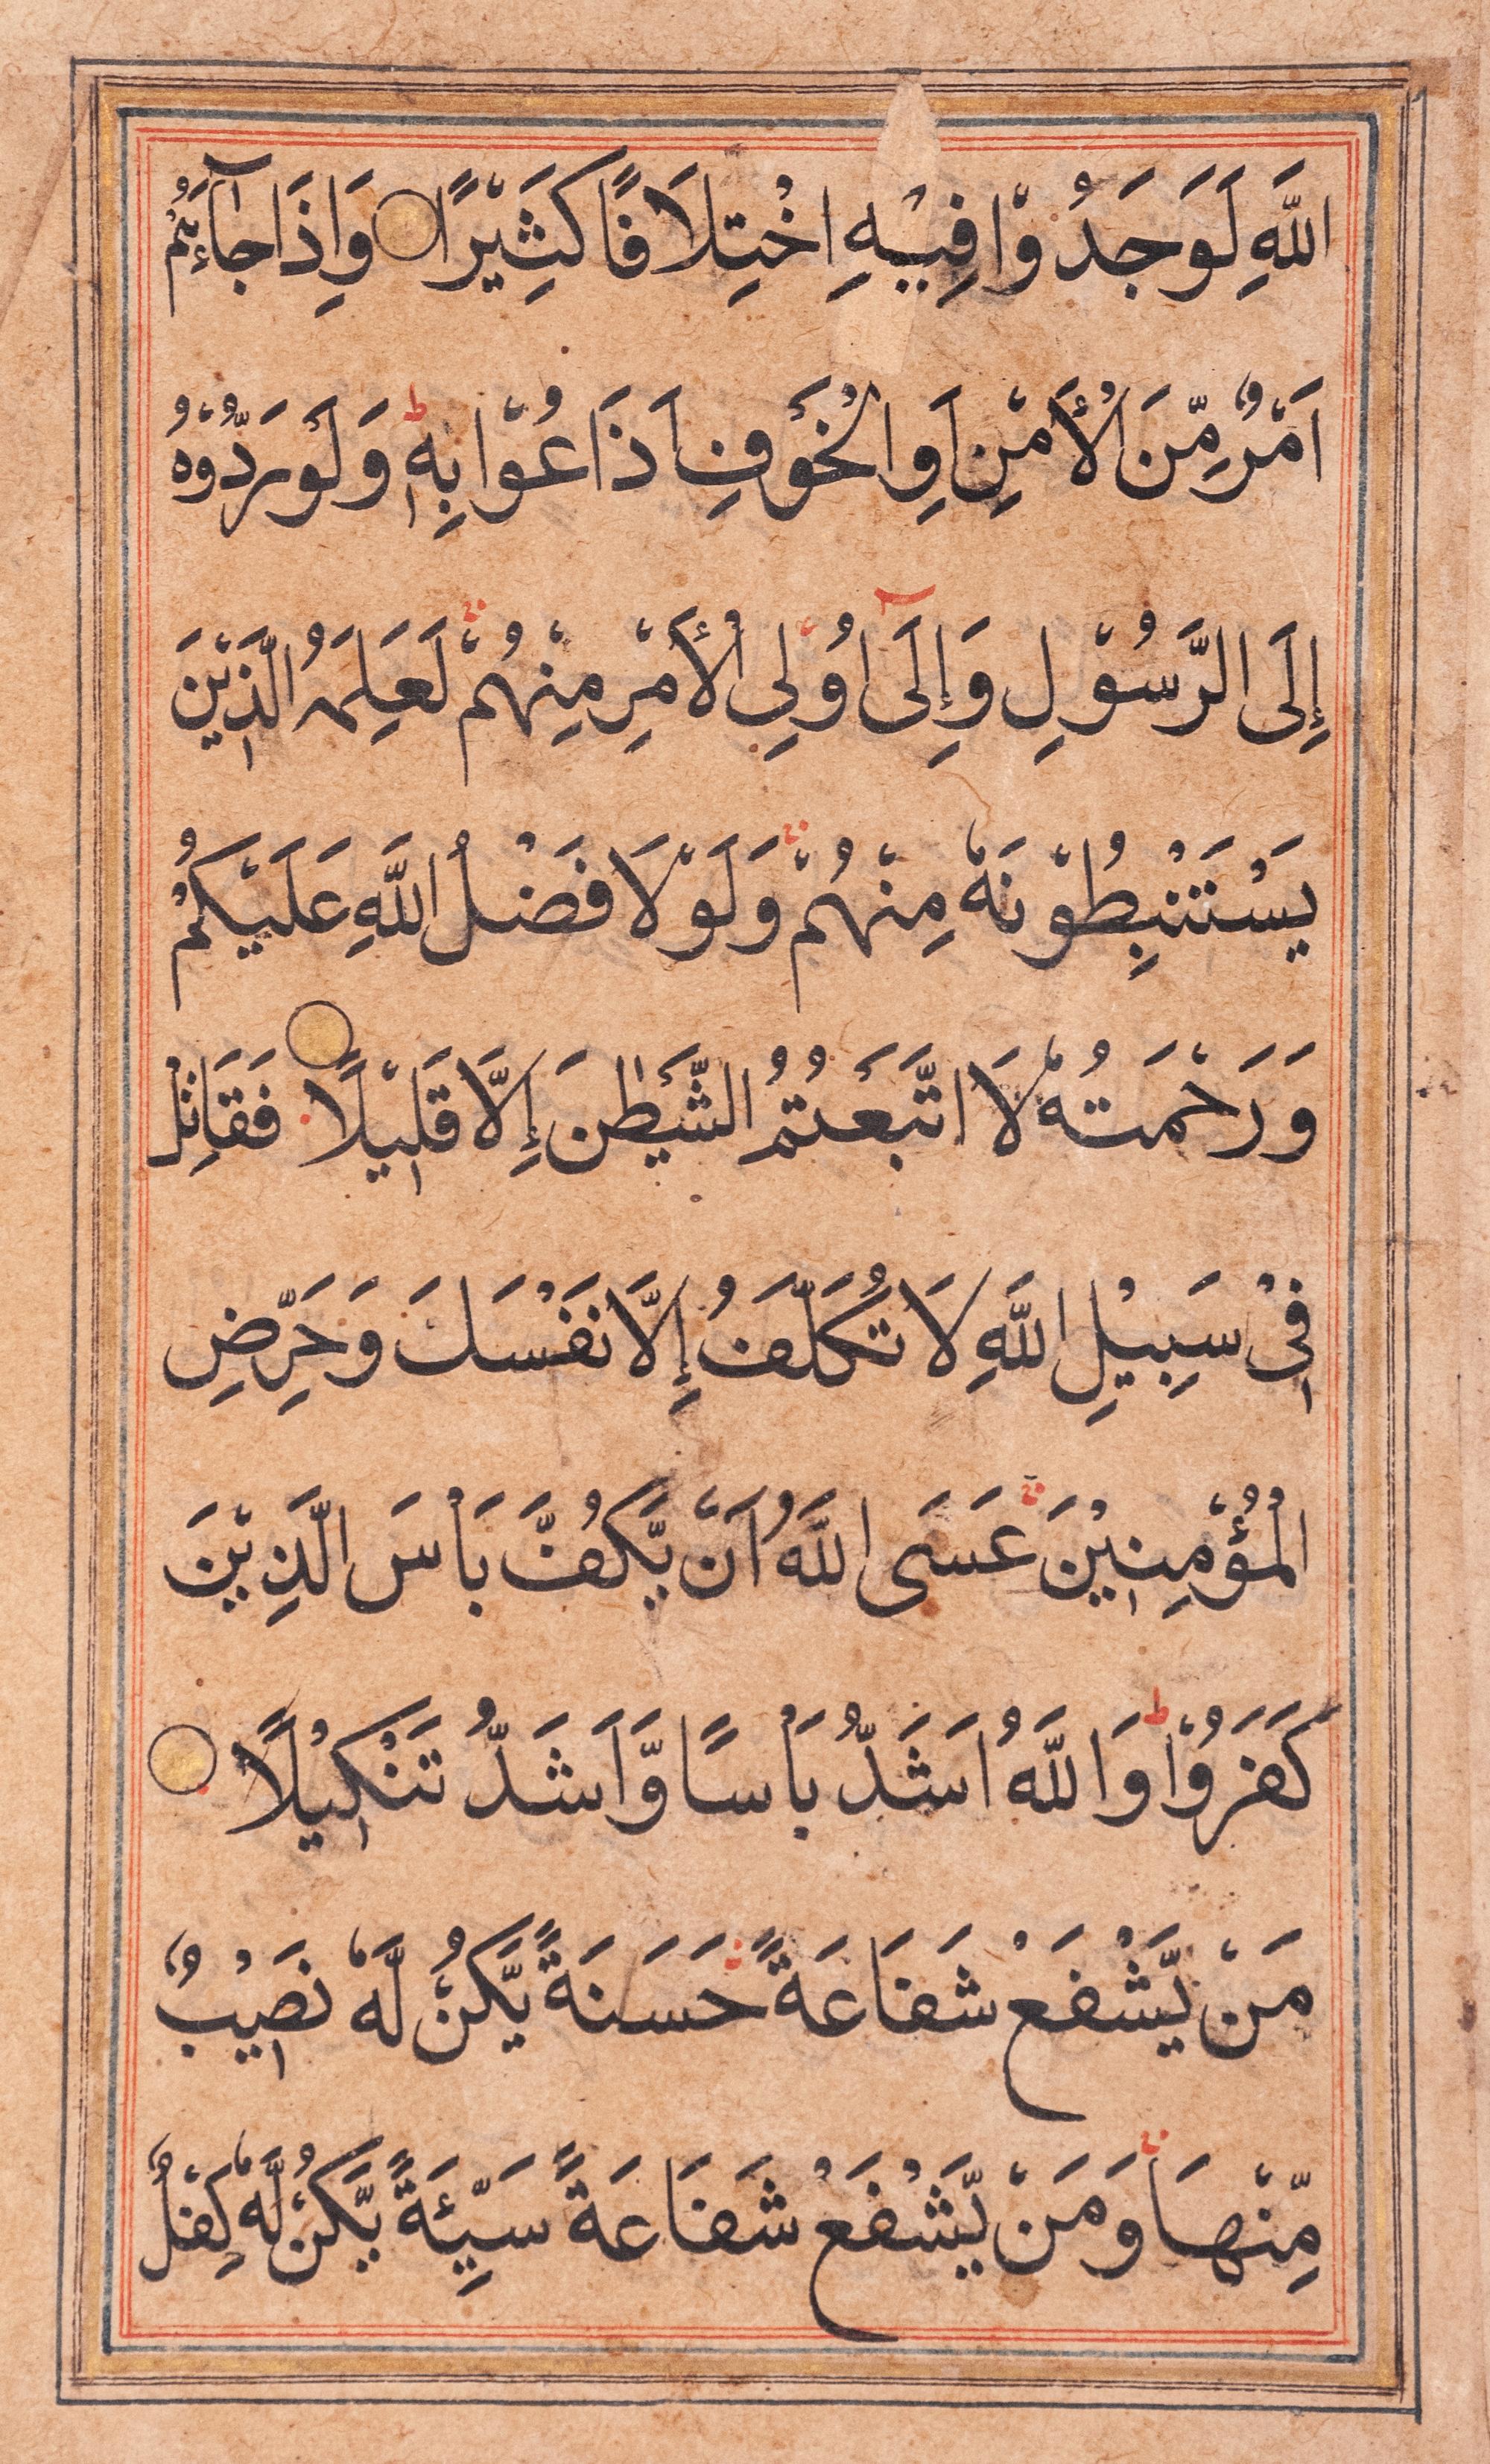 اللَّهِ لَوَجَدُوْا فِيْهِ اخْتِلَافًا كَثِيْرًا وَاِذَا جَآءَهُمْ
اَمْرٌ مِّنَ الْأَمْنِ اَوِ الْخَوْفِ اَذَاعُوْا بِهٖ ط وَلَوْ رَدُّوْهُ
إِلَى الرَّسُوْلِ وَإِلَىٓ اُولِى الْأَمْرِ مِنْهُمْ لَعَلِمَهُ الَّذِيْنَ
يَسْتَنْبِطُوْنَهٗ مِنْهُمْ وَلَوْلَا فَضْلُ اللَّهِ عَلَيْكُمْ
وَرَحْمَتُهٗ لَا اتَّبَعْتُمُ الشَّيْطٰنَ إِلَّا قَلِيْلًا فَقَاتِلْ
فِيْ سَبِيْلِ اللَّهِ لَا تُكَلَّفُ إِلَّا نَفْسَكَ وَحَرِّضِ
الْمُؤْمِنِيْنَ عَسَى اللَّهُ اَنْ يَّكُفَّ بَأْسَ الَّذِيْنَ
كَفَرُوْا ط وَاللَّهُ اَشَدُّ بَاْسًا وَّاَشَدُّ تَنْكِيْلًا
مَنْ يَّشْفَعْ شَفَاعَةً حَسَنَةً يَّكُنْ لَّهٗ نَصِيْبٌ
مِّنْهَا وَمَنْ يَّشْفَعْ شَفَاعَةً سَيِّئَةً يَّكُنْ لَّهٗ كِفْلٌ